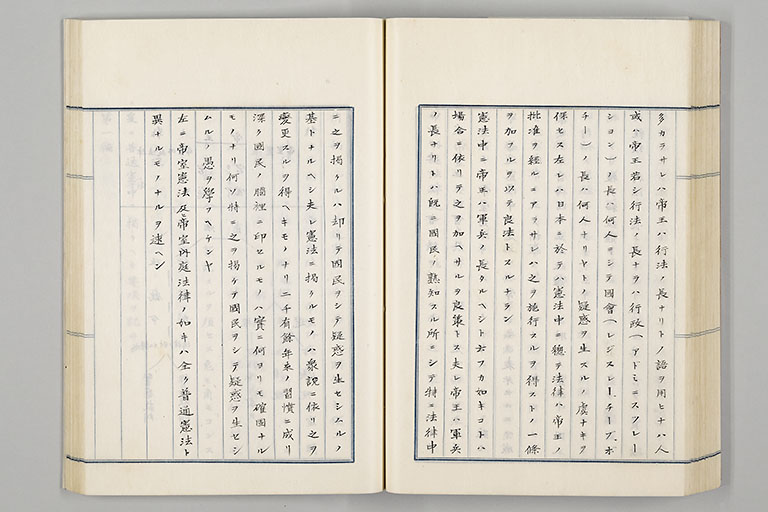 多カラサレハ帝王ハ行法ノ長ナリトノ語ヲ用ヒナハ人
或ハ帝王若シ行法ノ長ナラハ行政(アドミニスツレー
シヨン)ノ長ハ何人ヲシテ國會(レジスレーチーブ、ボ
チー)ノ長ハ何人ナリヤトノ疑惑ヲ生スルノ虞ナキヲ
保セス左レハ日本ニ於テハ憲法中ニ總テ法律ハ帝王ノ
批准ヲ経ルニアラサレハ之ヲ施行スルヲ得ストノ一條
ヲ加フルヲ以テ良法トスルナラン
憲法中ニ帝王ハ軍兵ノ長タルヘシト云フカ如キコトハ
場合ニ依リテ之ヲ加ヘサルヲ良策トス夫レ帝王ハ軍兵
ノ長ナリトハ既ニ國民ノ熟知スル所ニシテ特ニ法律中
ニ之ヲ掲クルハ却リテ國民ヲシテ疑惑ヲ生セシムルノ
基トナルヘシ夫レ憲法ニ掲クルモノハ衆説ニ依リ之ヲ
変更スルヲ得ヘキモノナリ二千有餘年来ノ習慣ニ成リ
深ク國民ノ腦裡ニ印セルモノハ實ニ何ヨリモ確固ナル
モノナリ何ソ特ニ之ヲ掲ケテ國民ヲシテ疑惑ヲ生セシ
ムルノ愚ヲ學フヘケンヤ
左ニ帝室憲法及ヒ帝室内庭法律ノ如キハ全ク普通憲法ト
異ナルモノナルヲ述ヘン